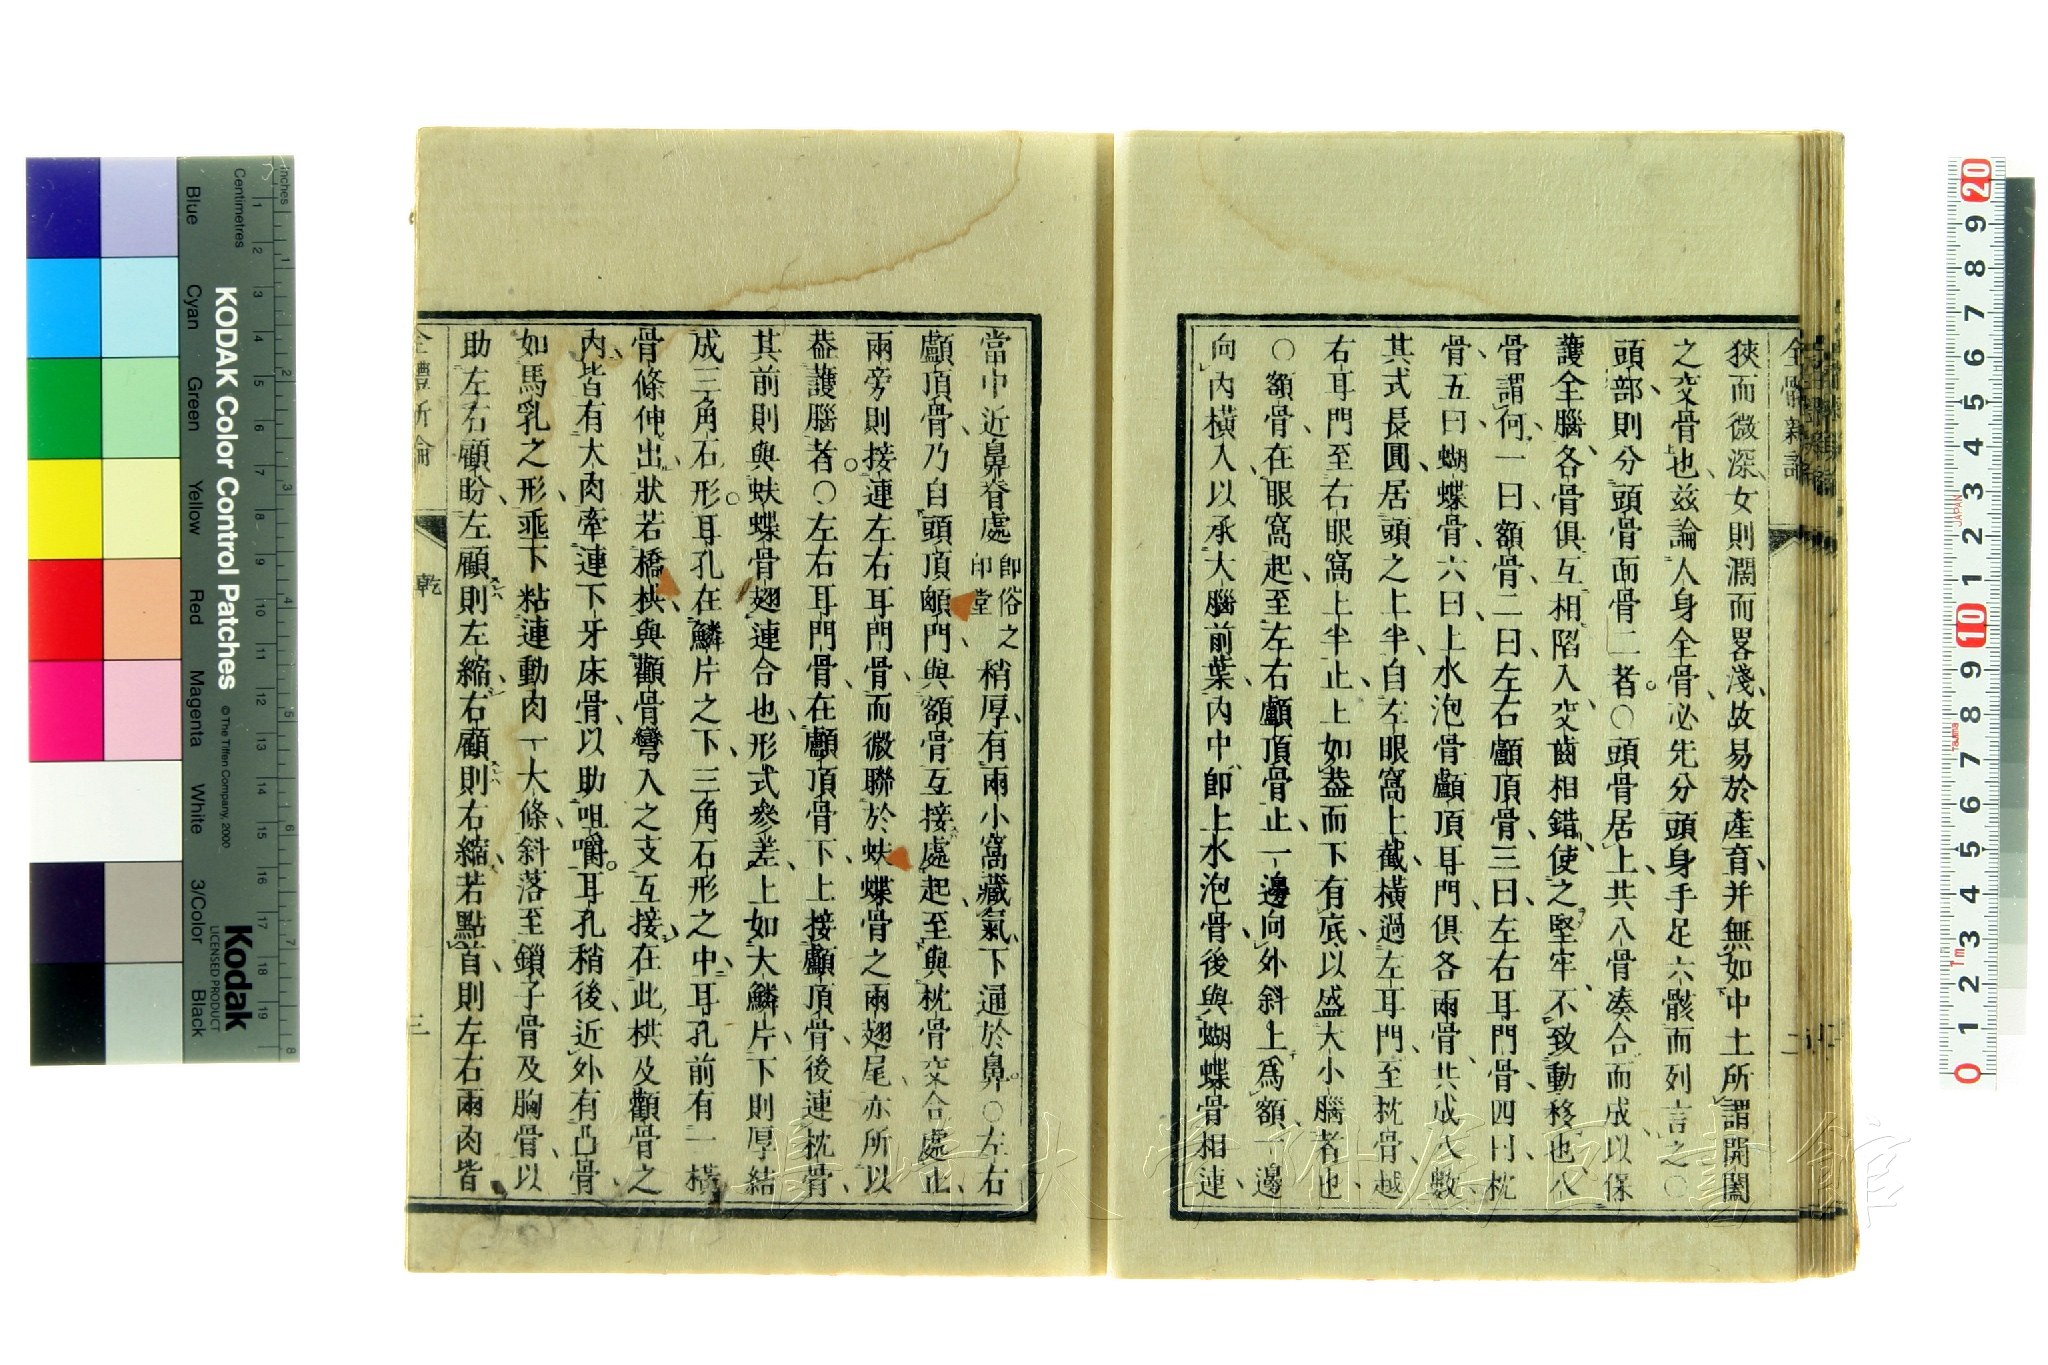 全體新論
狹而微深女則濶而畧淺故易於產育并無如中土所謂開闔
之交骨也玆論人身全骨必先分頭身手足六骸而列言之○
頭部則分頭骨面骨二者○頭骨居上共八骨湊合而成以保
護全腦各骨俱互相陷入交齒相錯使之堅牢不致動移也八
骨謂何一曰額骨二曰左右顱頂骨三曰左右耳門骨四曰枕
骨五曰蝴蝶骨六曰上水泡骨顱頂耳門俱各兩骨共成八數
其式長圓居頭之上半自左眼窩上截橫過左耳門至枕骨越
右耳門至右眼窩上半止上如葢而下有底以盛大小腦者也
○額骨在眼窩起至左右顱頂骨止一邊向外斜上爲額一邊
向內橫入以承大腦前葉內中卽上水泡骨後與蝴蝶骨相連
當中近鼻脊處卽俗之印堂稍厚有兩小窩藏氣下通於鼻○左右
顱頂骨乃自頭頂頤門與額骨互接處起至與枕骨交合處止
兩旁則接連左右耳門骨而微聯於蚨蝶骨之兩翅尾亦所以
葢護腦者○左右耳門骨在顱頂骨下上接顱頂骨後連枕骨
其前則與蚨蝶骨翅連合也形式參差上如大鱗片下則厚結
成三角石形耳孔在鱗片之下三角石形之中耳孔前有一橫
骨條伸出狀若橋栱與顴骨彎入之支互接在此栱及顴骨之
內皆有大肉牽連下牙床骨以助咀嚼耳孔稍後近外有凸骨
如馬乳之形乖下粘連動肉一大條斜落至鎖子骨及胸骨以
助左右顧盼左顧則左縮右顧則右縮若點首則左右兩肉皆
全體新論 乾 三
KODAK Color Control Patches
© The Tiffen Company, 2000
Kodak
LICENSED PRODUCT
Blue Cyan Green Yellow Red Magenta White 3/Color Black
Inches
Centimetres
1 2 3 4 5 6 7 8
1 2 3 4 5 6 7 8 9 10 11 12 13 14 15 16 17 18 19
20 9 8 7 6 5 4 3 2 1 10 9 8 7 6 5 4 3 2 1 0
JAPAN
長崎大学附属図書館